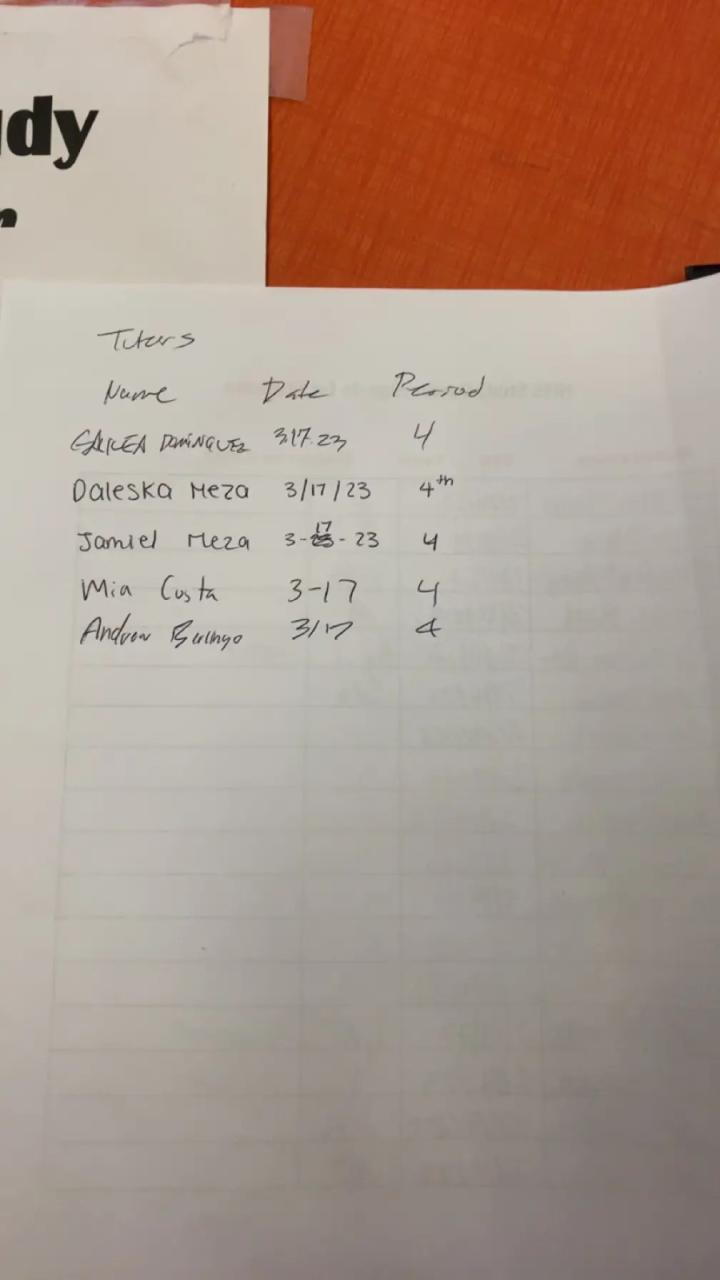 dy
Tutors
Name Date Period
DOMINGUEZ 3.17.23 4
Daleska Meza 3/17/23 4th
Jamiel Meza 3-17-23 4
Mia Costa 3-17 4
Andrew 3/17 4